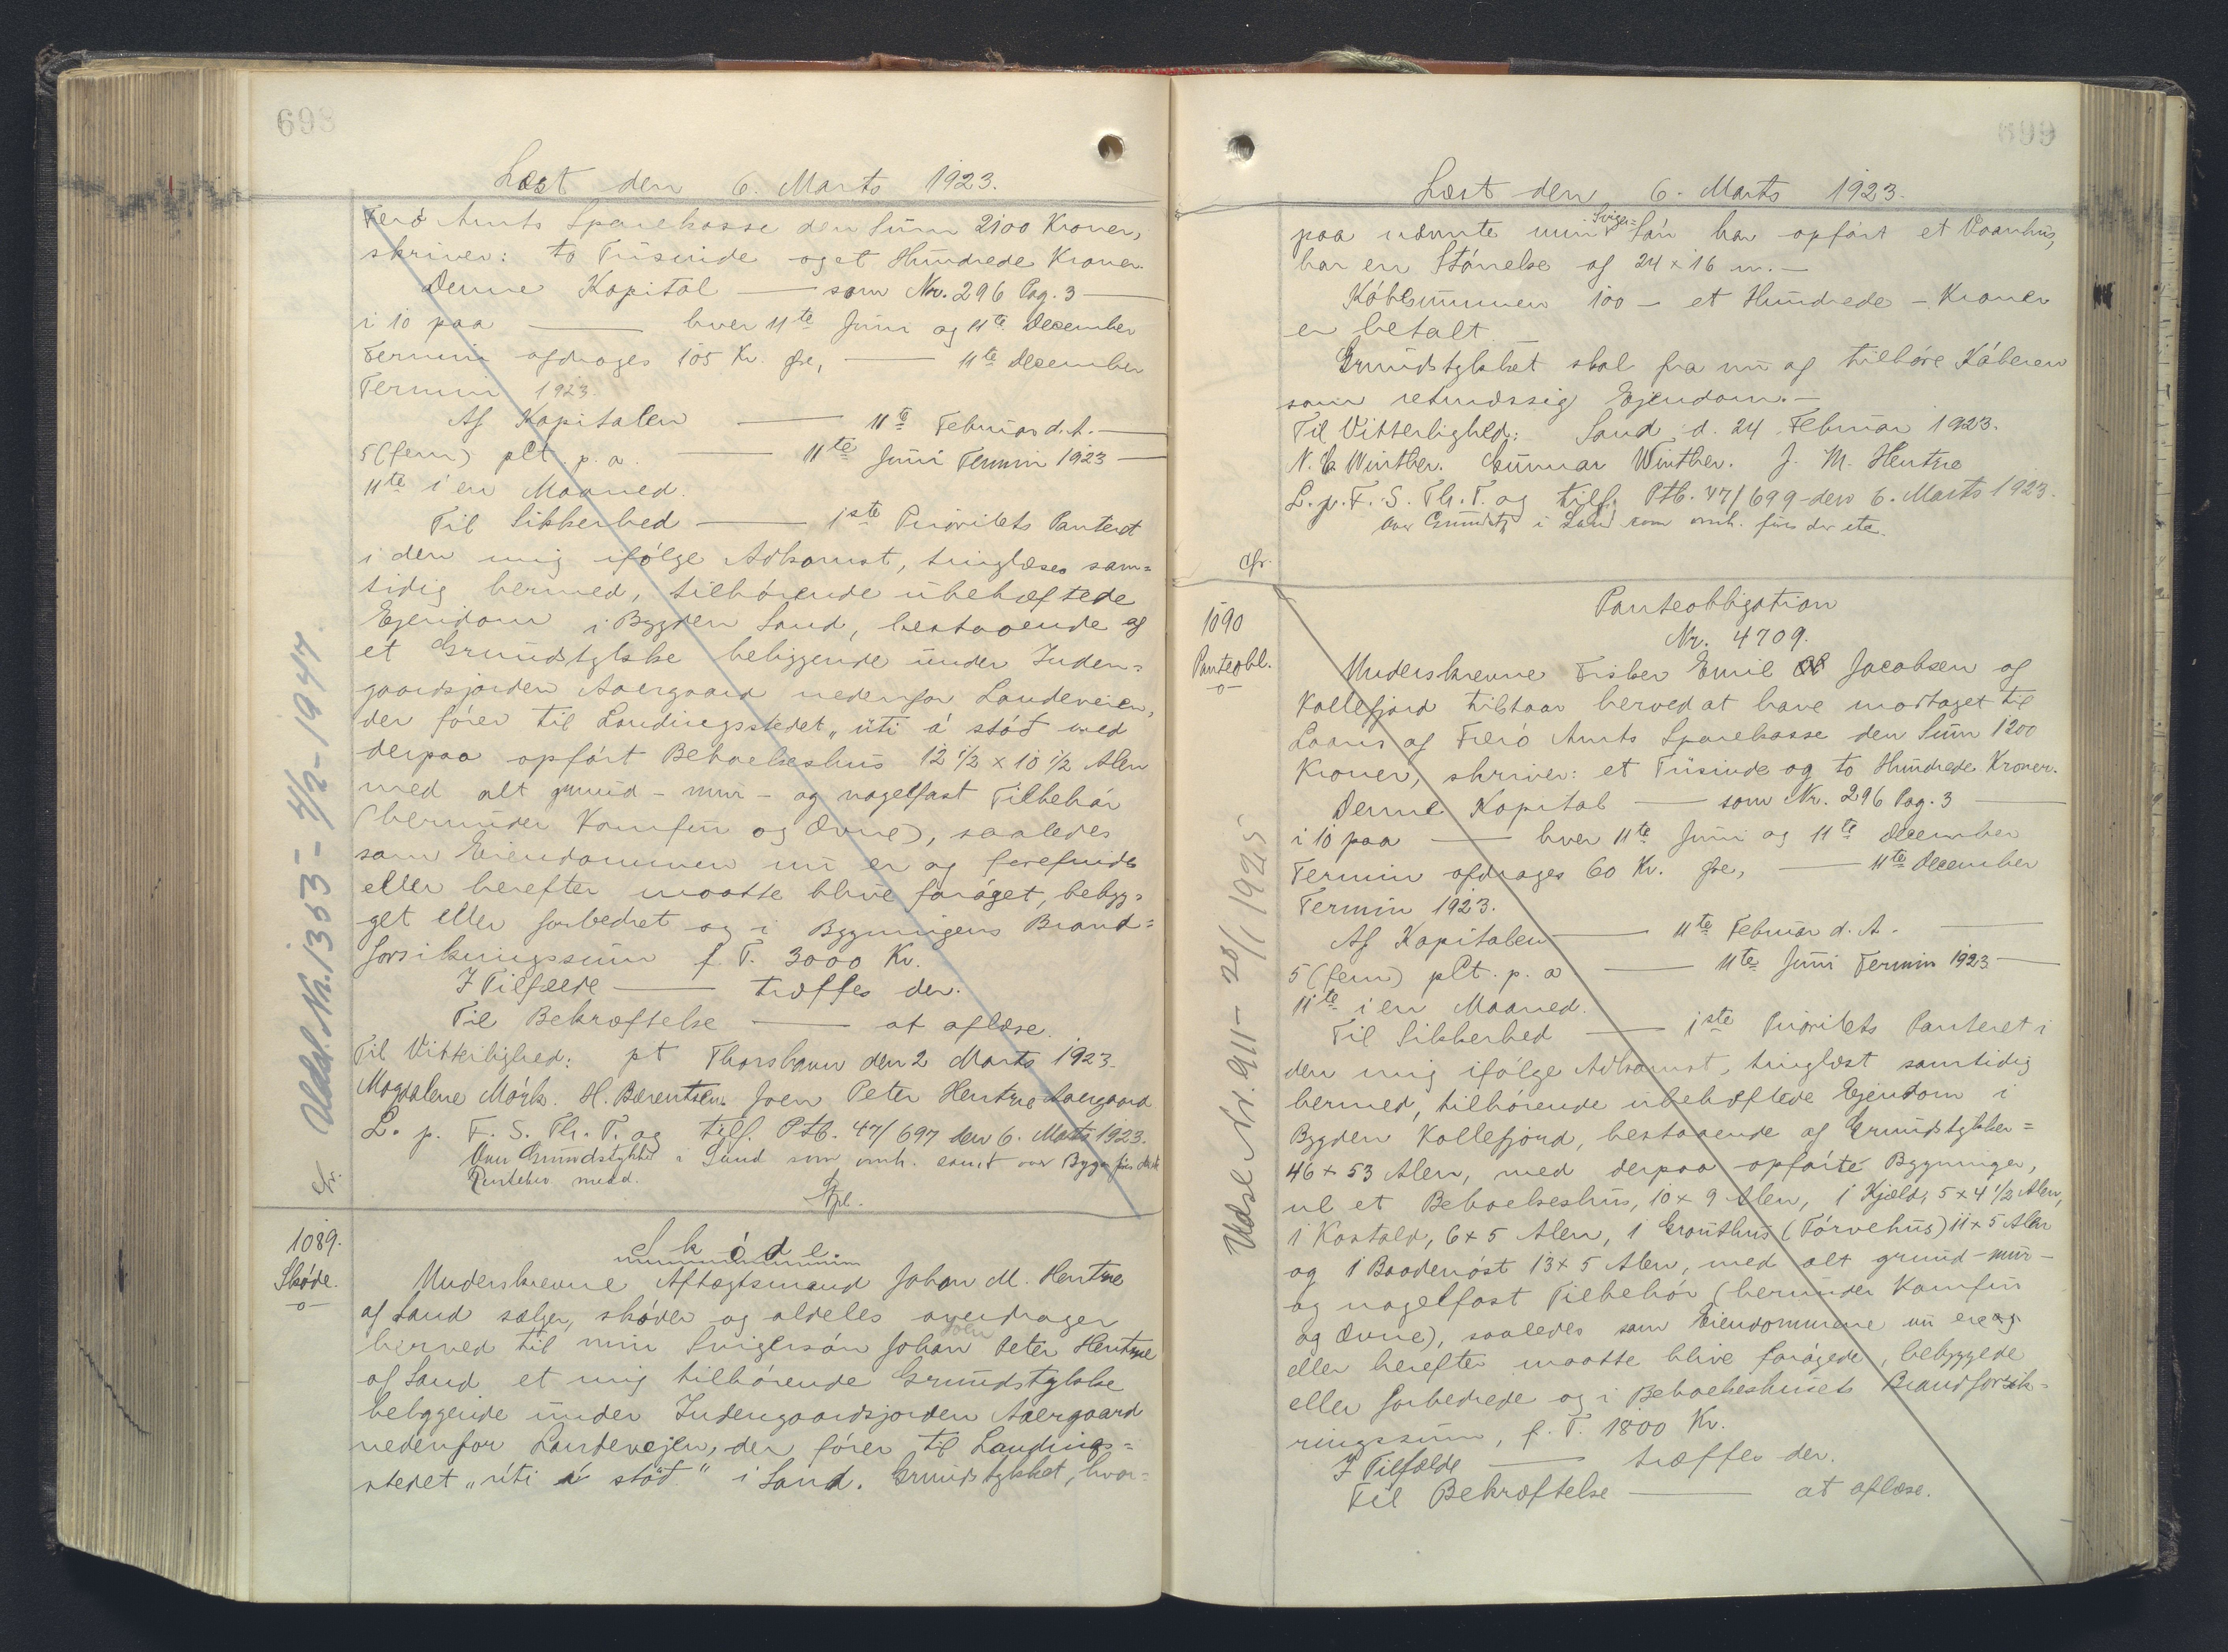 698
Læst den 6. Marts 1923.
Færø Amts Sparekasse den Sum 2100 Kroner,
skriver: to Tusinde og et Hundrede Kroner.
Denne Kapital — som Nr. 296 Pag. 3 —
i 10 paa — hver 11te Juni og 11te December
Termin afdrages 105 Kr. Øre, — 11te December
Termin 1923.
Af Kapitalen — 11te Februar d. A. —
5 (fem) pCt. p. a. — 11te Juni Termin 1923 —
11te i en Maaned.
Til Sikkerhed — 1ste Prioritets Panteret
i den mig ifølge Adkomst, tinglæses sam=
tidig hermed, tilhørende ubehæftede
Ejendom i Bygden Sand, bestaaende af
et Grundstykke beliggende under Inden=
gaardsjorden Aaergaard nedenfor Landeveien,
der fører til Landingsstedet „úti á støð med
derpaa opført Beboelseshus 12 1/2 x 10 1/2 Alen
med alt grund- mur- og nagelfast Tilbehør
(herunder Komfur og Ovne), saaledes
som Eiendommen nu er og forefindes
eller herefter maatte blive forøget, bebyg=
get eller forbedret og i Bygningens Brand=
forsikringssum f. T. 3000 Kr.
I Tilfælde — træffes der.
Til Bekræftelse — at aflæse.
Til Vitterlighed: pt Thorshavn den 2 Marts 1923.
Magdalene Mørk. H. Bærentsen. Joen Peter Hentze Aaergaard
L. p. F. S. Th. T. og tilf. Ptb. 47/697 den 6. Marts 1923.
Over Grundstykke i Sand som omh. samt over Bygn. føres der etc
Pantebr. medd.
Cfr.
Udsl. Nr. 1353 - 4/2 - 1947.
1089.
Skøde.
-o-
Skøde.
Underskrevne Aftægtsmand Johan M. Hentze
af Sand sælger, skøder og aldeles overdrager
Joen
herved til min Svigersøn Johan Peter Hentze
af Sand et mig tilhørende Grundstykke
beliggende under Indengaardsjorden Aaergaard
nedenfor Landevejen, der fører til Landings=
stedet „úti á støð" i Sand. Grundstykket, hvor=
699
Læst den 6. Marts 1923.
Sviger=
paa nævnte min Søn har opført et Vaanhus,
har en Størrelse af 24 x 16 m. —
Købesummen 100 - et Hundrede - Kroner
er betalt.
Grundstykket skal fra nu af tilhøre Køberen
som retmæssig Ejendom. —
Til Vitterlighed: Sand, d. 24 Februar 1923.
N. C. Winther. Gunnar Winther. J. M. Hentze
L. p. F. S. Th. T. og tilf. Ptb. 47/699 den 6. Marts 1923.
Over Grundst. i Sand som omh. føres der etc.
Cfr.
1090
Panteobl.
-o-
Panteobligation
Nr. 4709.
Underskrevne Fisker Emil Jacobsen af
Kollefjord tilstaar herved at have modtaget til
Laans af Færø Amts Sparekasse den Sum 1200
Kroner, skriver: et Tusinde og to Hundrede Kroner.
Denne Kapital — som Nr. 296 Pag. 3 —
i 10 paa — hver 11te Juni og 11te December
Termin afdrages 60 Kr. Øre, — 11te December
Termin 1923.
Af Kapitalen — 11te Februar d. A. —
5 (fem) pCt. p. a — 11te Juni Termin 1923 —
11te i en Maaned.
Til Sikkerhed — 1ste Prioritets Panteret i
den mig ifølge Adkomst, tinglæst samtidig
hermed, tilhørende ubehæftede Ejendom i
Bygden Kollefjord, bestaaende af Grundstykker=
46 x 53 Alen, med derpaa opførte Bygninger,
et Beboelseshus, 10 x 9 Alen, 1 Hjald, 5 x 4 1/2 Alen,
1 Kostald, 6 x 5 Alen, 1 Grouthus (Tørvehus) 11 x 5 Alen
og 1 Baadenøst 13 x 5 Alen, med alt grund-mur-
og nagelfast Tilbehør (herunder Komfur
og Ovne), saaledes som Eiendommene nu ere og
eller herefter maatte blive forøgede, bebyggede
eller forbedrede og i Beboelseshusets Brandforsik=
ringssum, f. T. 1800 Kr.
I Tilfælde — træffes der.
Til Bekræftelse — at aflæse.
Udsl. Nr. 911 - 28/1 1925